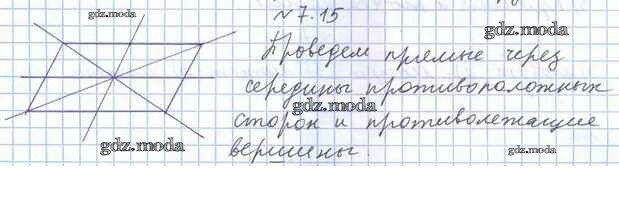 gdz.moda
№7.15
gdz.moda
Проведем прямые через
середины противоположных
gdz.moda
сторон и противолежащие
gdz.moda
вершины.
gdz.moda